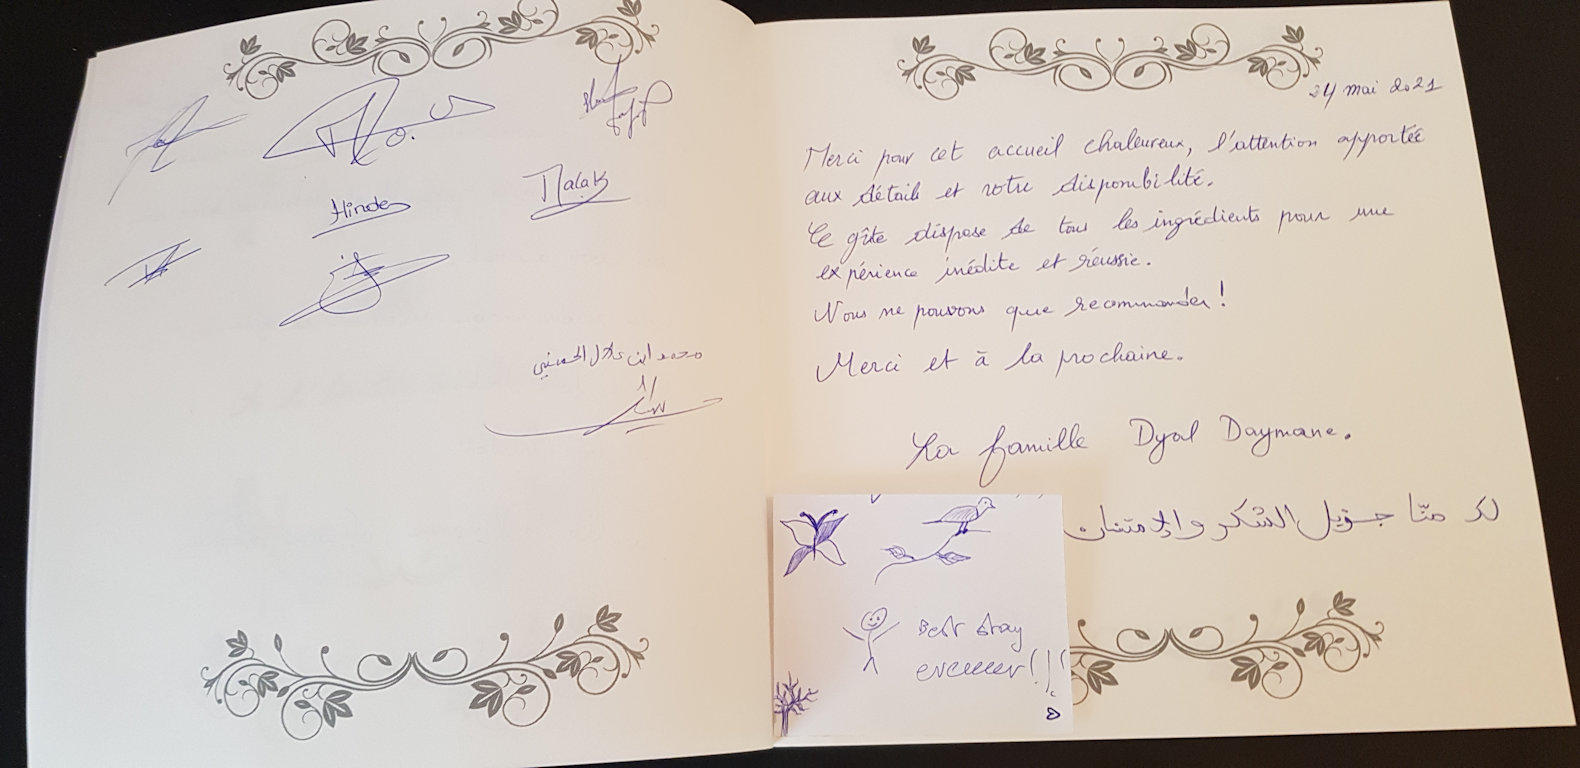 Hinde
Malak
محمد ابن علال الحسني
24 mai 2021
Merci pour cet accueil chaleureux, l'attention apportée
aux détails et votre disponibilité.
Ce gîte dispose de tous les ingrédients pour une
expérience inédite et réussie.
Nous ne pouvons que recommander!
Merci et à la prochaine.
La famille Dyal Daymane.
لكم منّا جزيل الشكر والإمتنان
Best stay
eveeeeer!!!